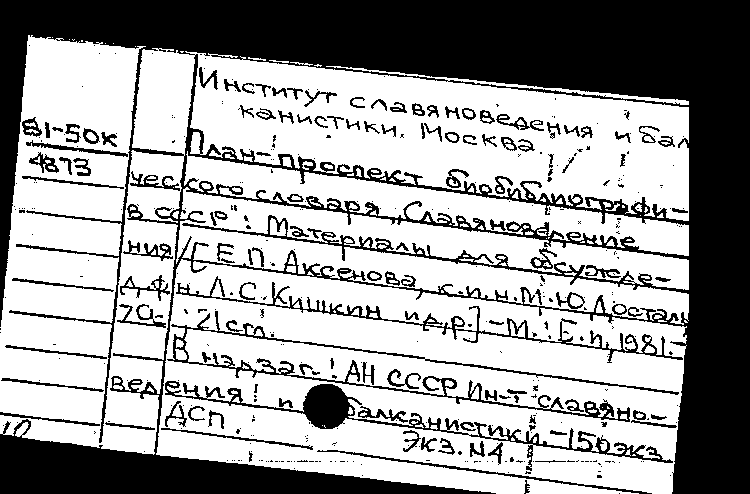 Институт славяноведения и бал
канистики. Москва.
81-50к
4873
План-проспект биобиблиографи-
ческого словаря „Славяноведение
в СССР": Материалы для обсужде-
ния/[Е.П. Аксенова, к.и.н. М.Ю. Досталь
д.ф.н. Л.С. Кишкин и др.] -М.: Б.и, 1981.-
70с ; 21см.
В надзаг.: АН СССР, Ин-т славяно-
ведения и балканистики. -150экз
ДСП. Экз. N4.
10